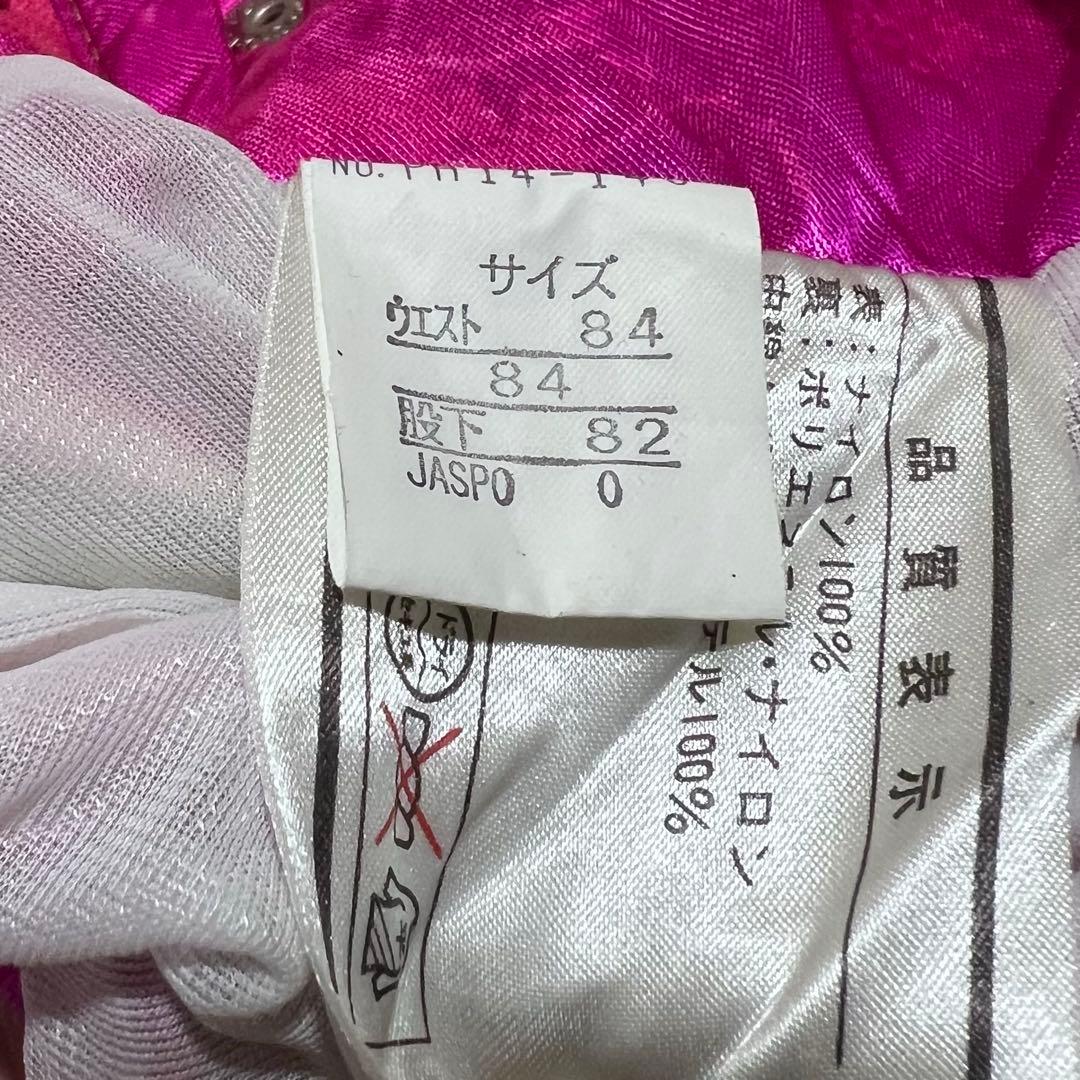 サイズ
ウエスト 84
84
股下 82
JASPO 0
品質表示
表:ナイロン100%
裏:ポリエ
ル・ナイロン
テル100%
ドライ